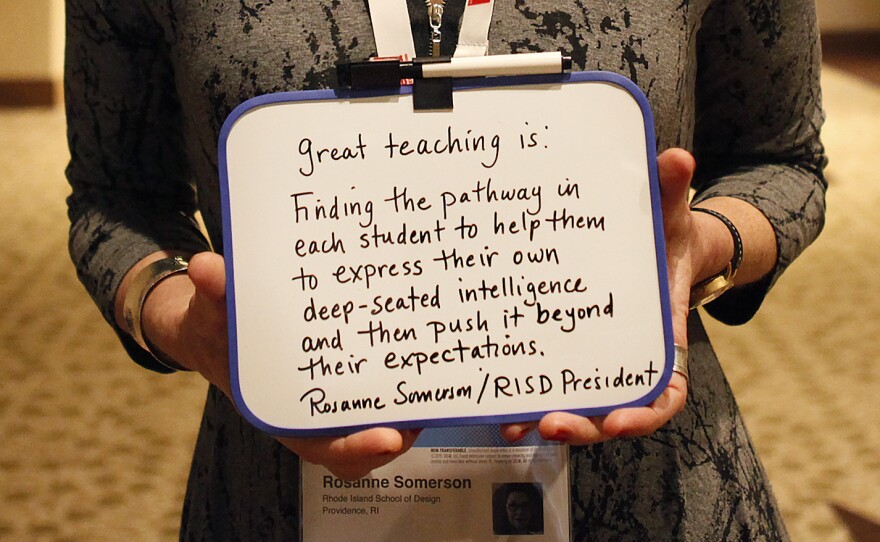 great teaching is:
Finding the pathway in
each student to help them
to express their own
deep-seated intelligence
and then push it beyond
their expectations.
Rosanne Somerson/RISD President
NON-TRANSFERABLE
Rosanne Somerson
Rhode Island School of Design
Providence, RI